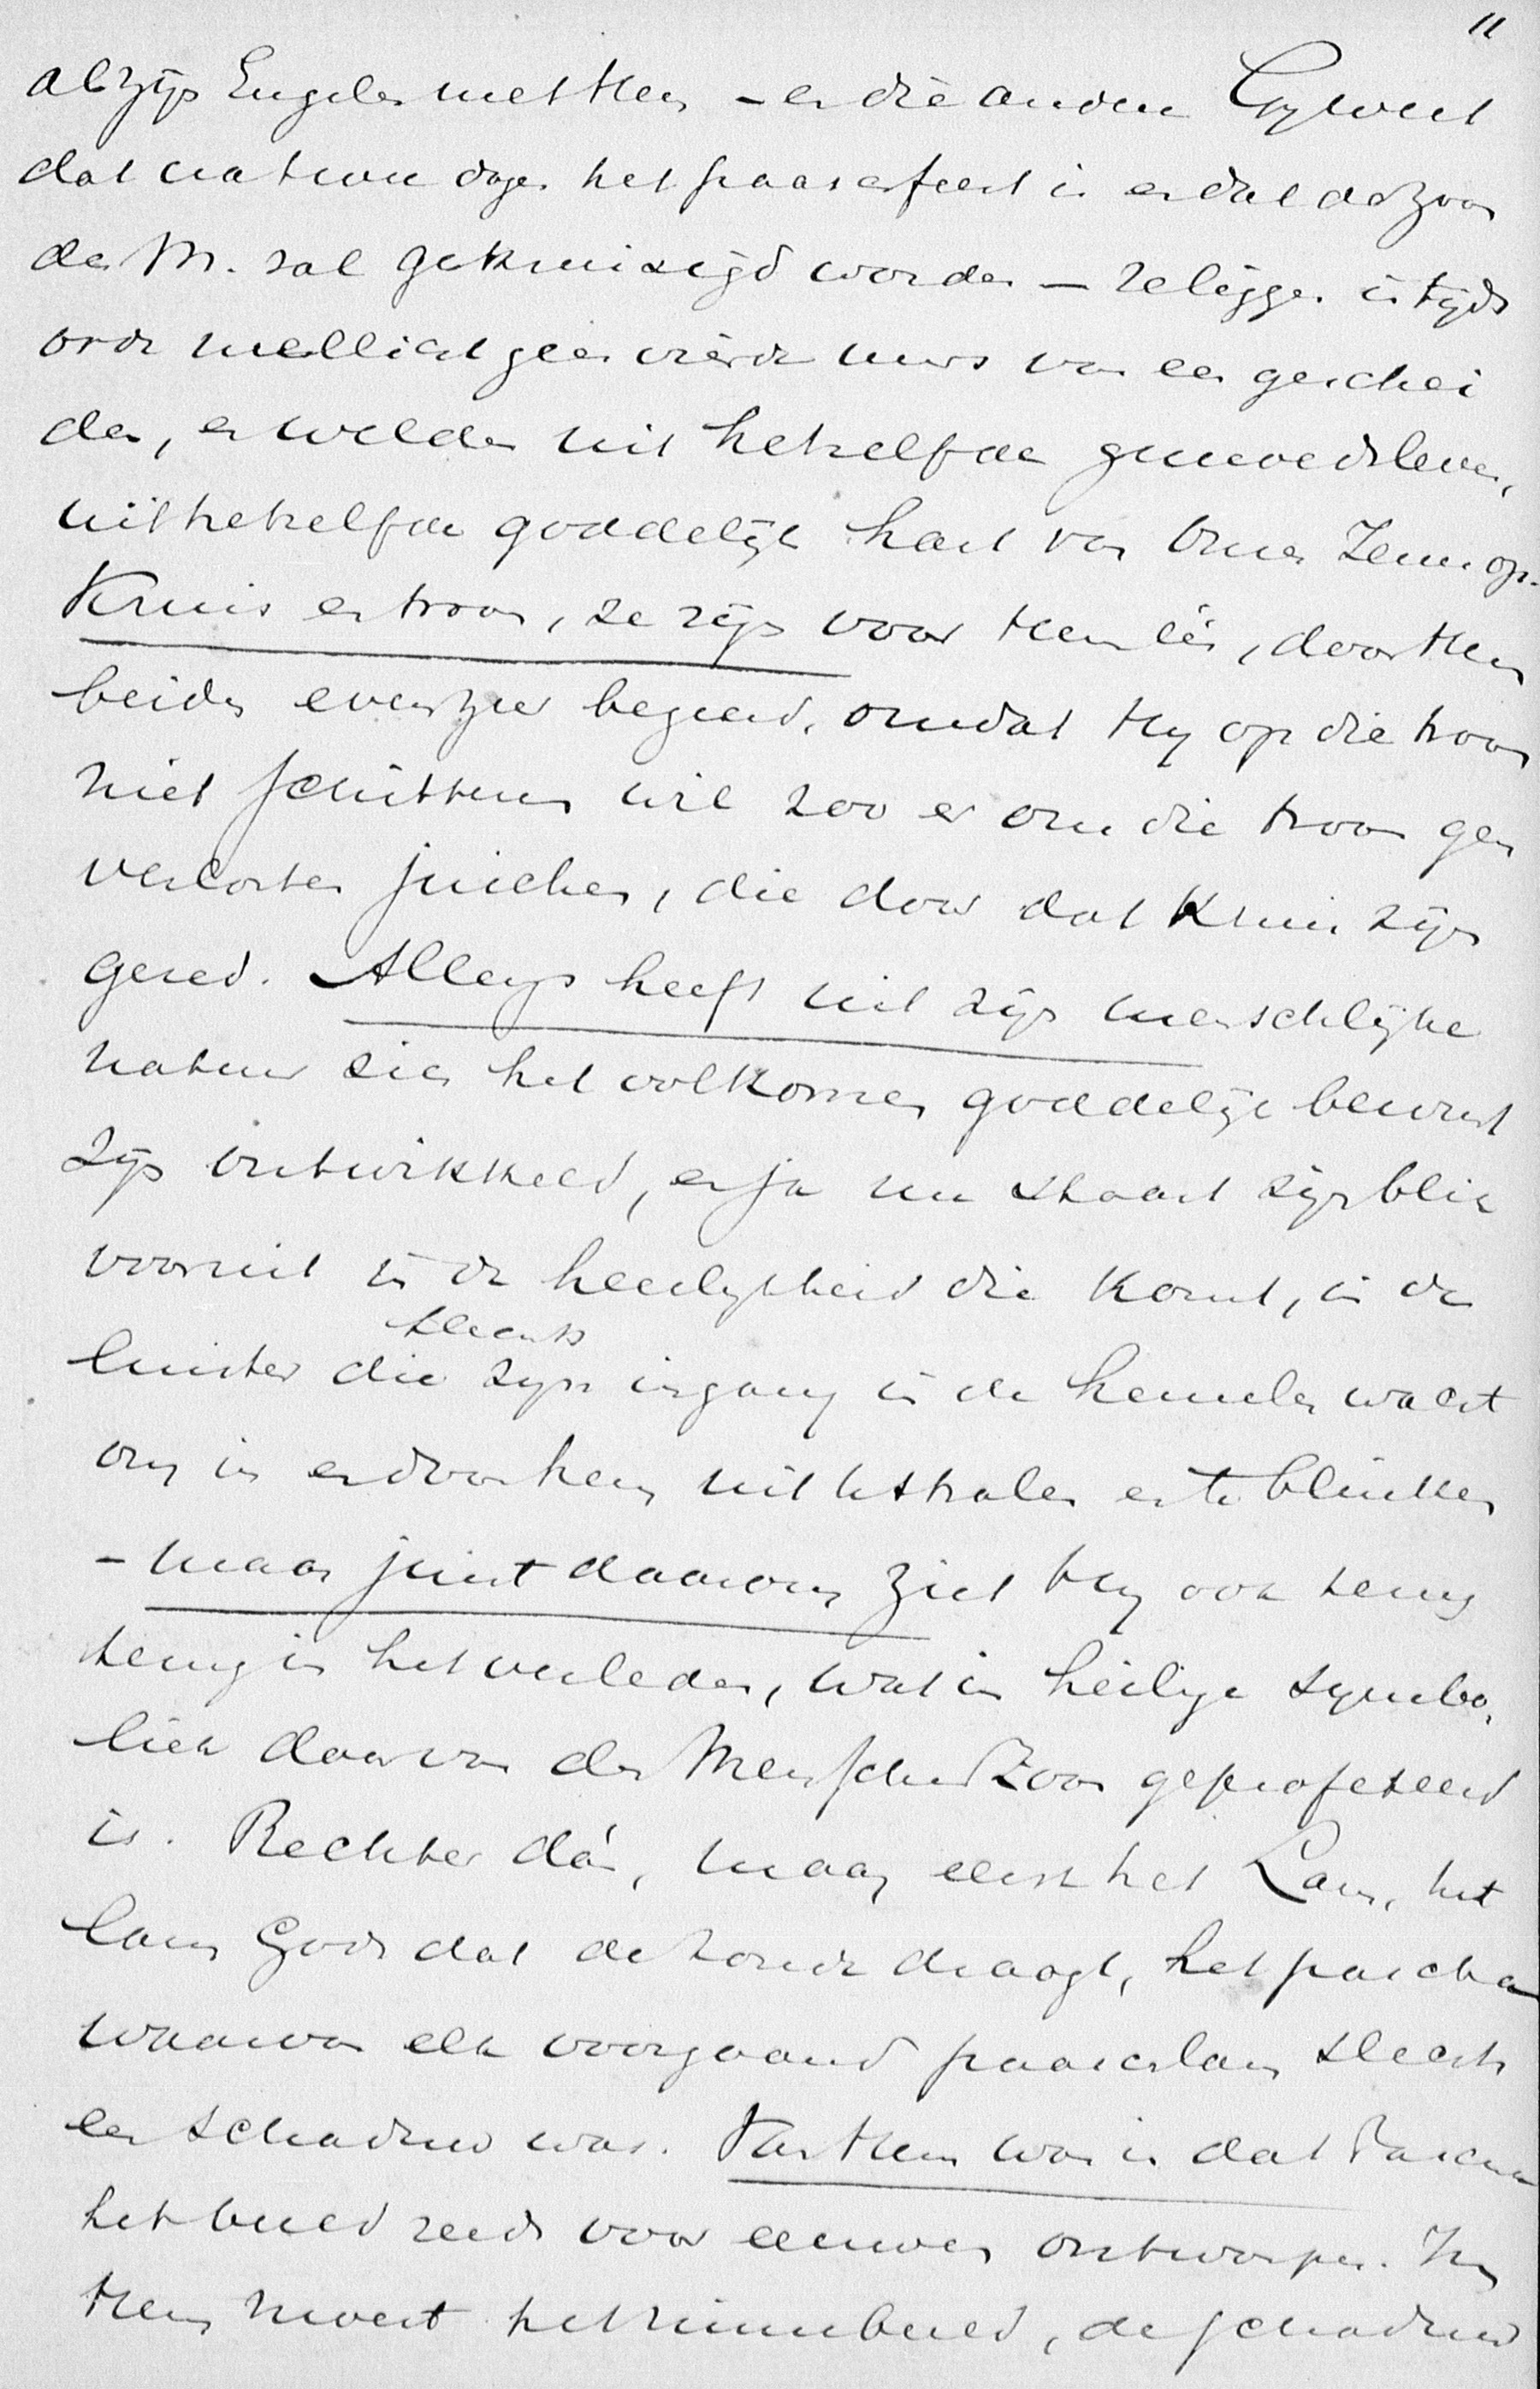 11
al zijn Engelen met Hem – en die andere Gy weet
dat na twee dagen het paaschfeest is en dat de Zoon
des M. zal gekruisigd worden – ze liggen in tijds
orde wellicht geen vierde uurs van een geschei
den, en welden uit hetzelfde gemoedsleven,
uit hetzelfde goddelijk hart van Onzen Jezus op.
Kruis en troon, ze zijn voor Hem één, door Hem
beiden evenzeer begeerd, omdat Hy op die troon
niet schitteren wil zoo er om die troon geen
verlosten juichen, die door dat Kruis zijn
gered. Allengs heeft uit zijn menschelijke
natuur zich het volkomen goddelijk bewust
zijn ontwikkeld, en ja nu staart zijn blik
vooruit in de heerlykheid die komt, in de
slechts
luister die zyn ingang in de hemelen wacht
om in en door hem uit te stralen en te blinken
– maar juist daarom ziet Hy ook terug
terug in het verleden, wat in heilige symbo,
liek daar van des Menschen Zoon geprofeteerd
is. Rechter dán, maar eerst het Lam, het
lam Gods dat de zonde draagt, het pascha
waarvan elk voorgaand paaschlam slechts
een schaduw was. Van Hem was in dat Pascha
het beeld reeds voor eeuwen ontworpen. In
Hem moest het zinnebeeld, de schaduw